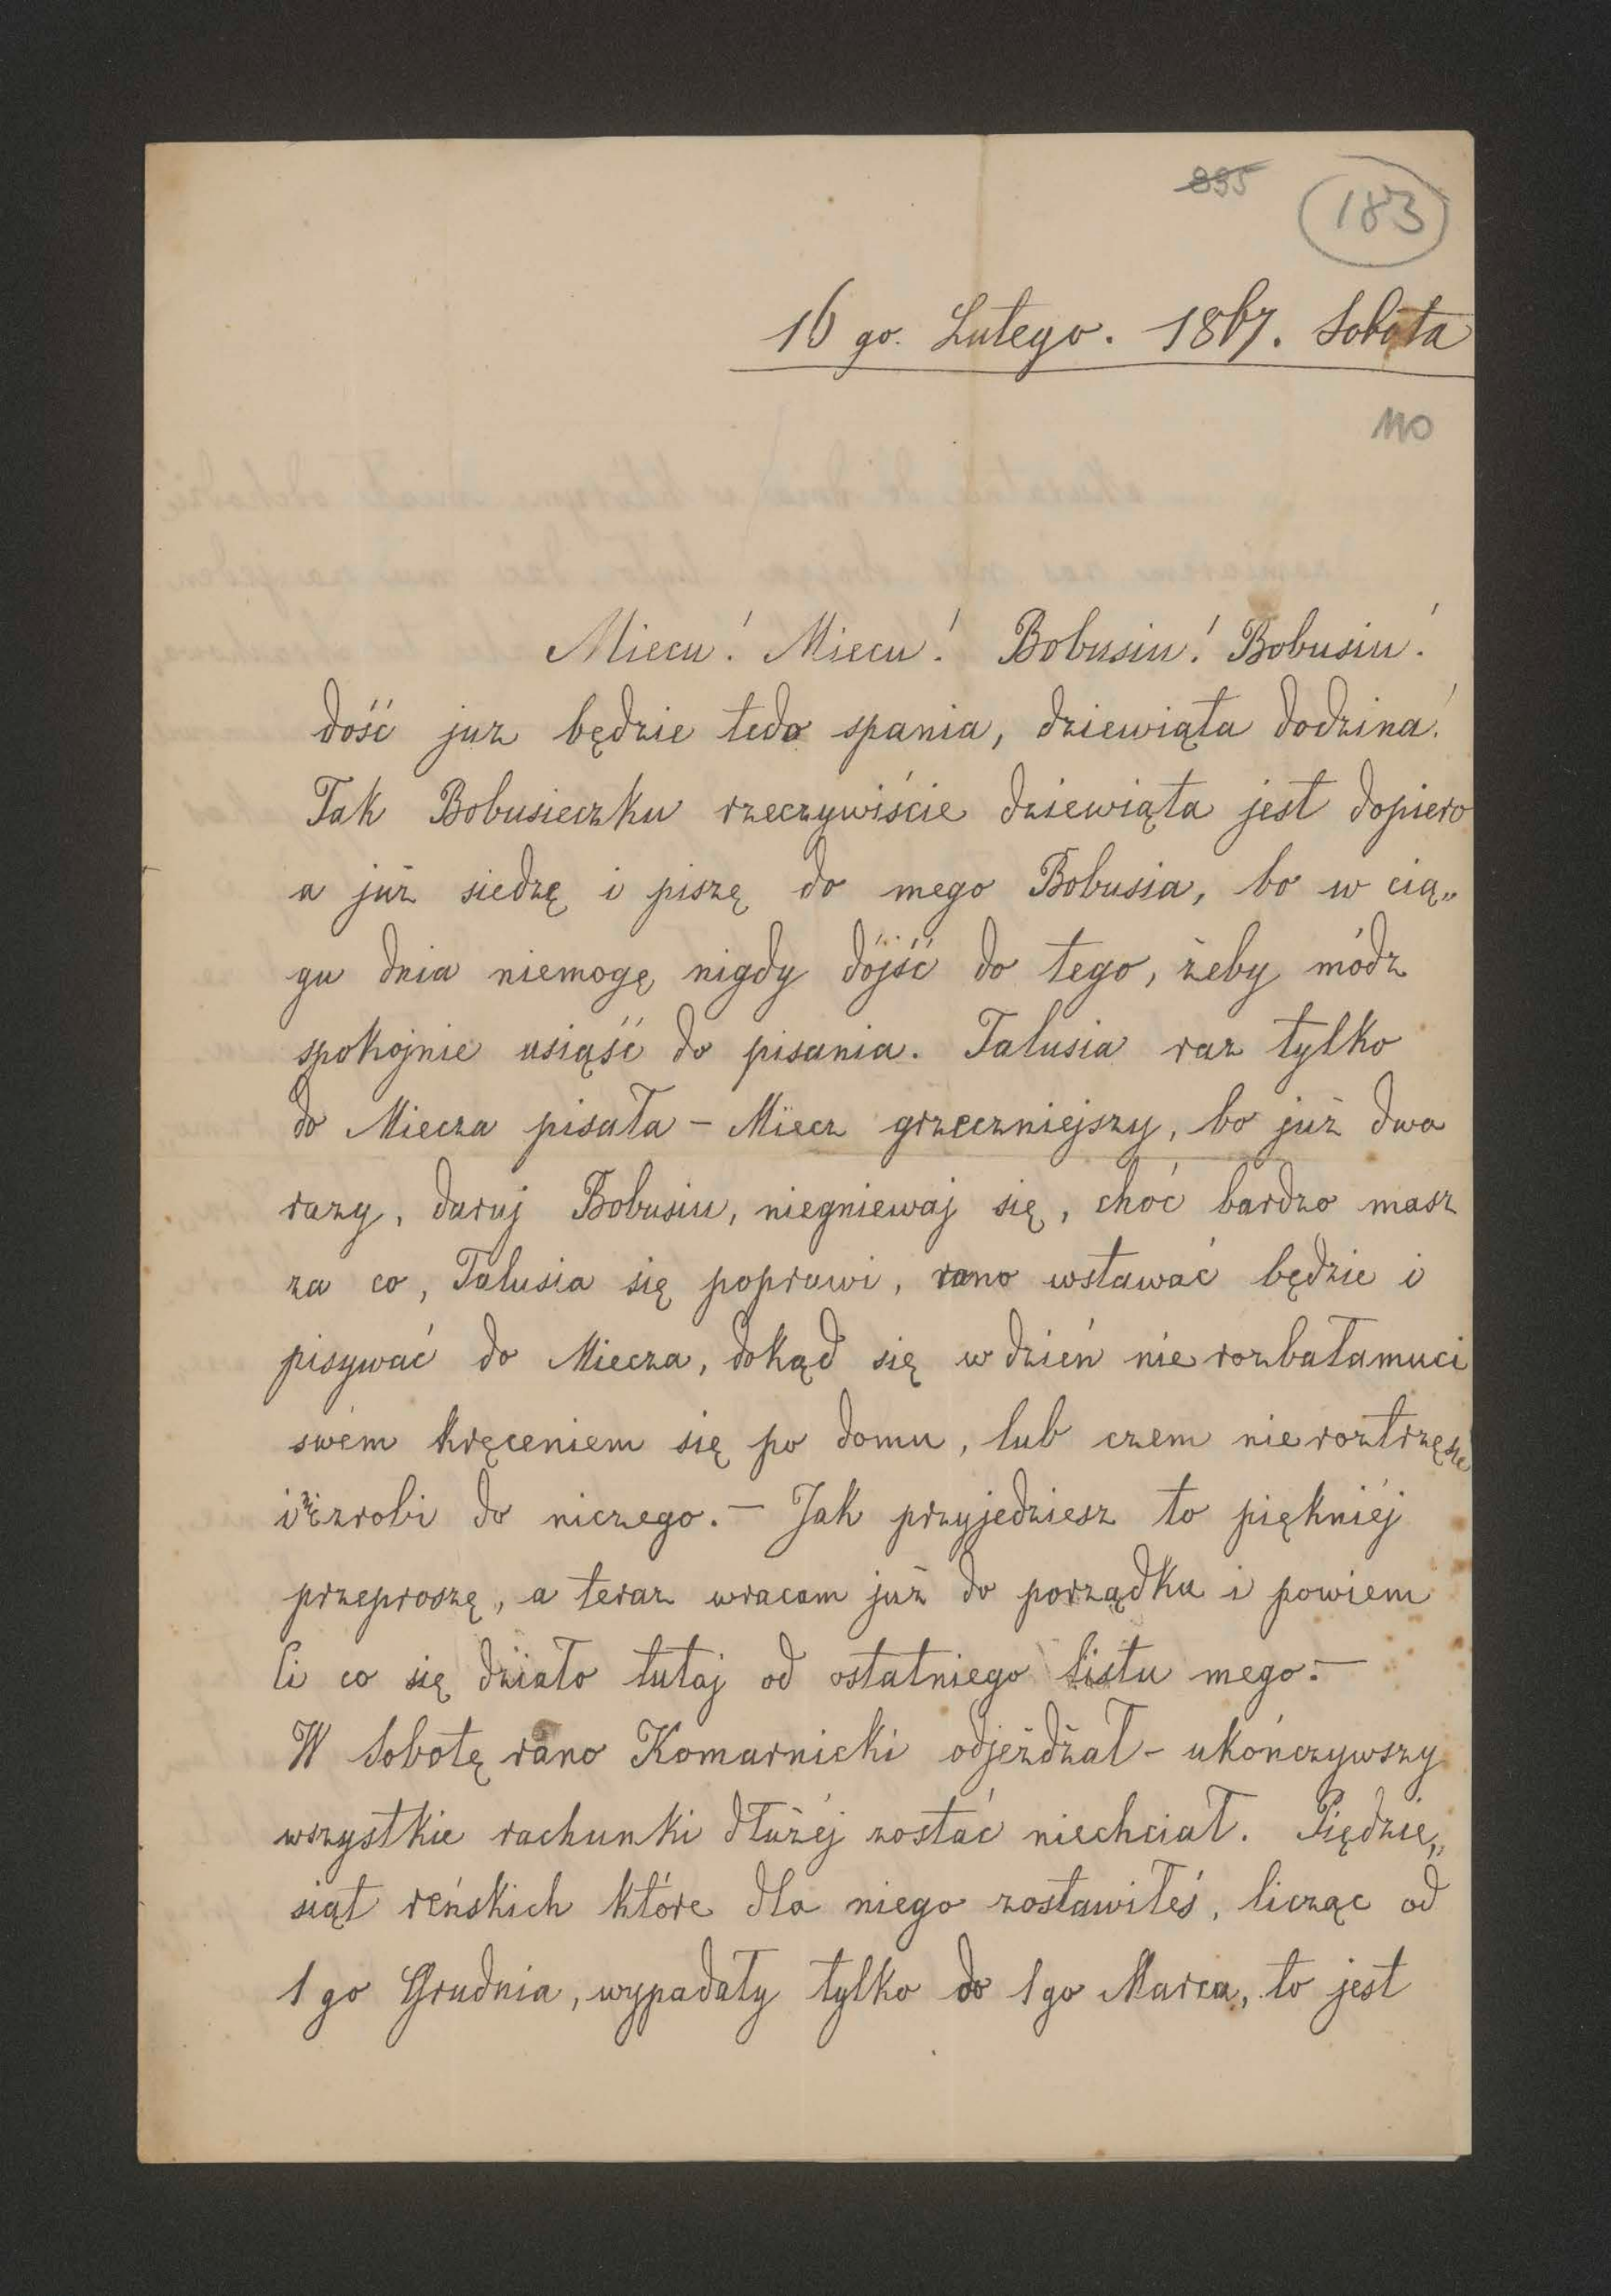 895
183
16 go. Lutego. 1867. Sobota
110
Miecu! Miecu! Bobusiu! Bobusiu!
dość juz będzie tedo spania, dziewiąta dodzina!
Tak Bobusieczku rzeczywiście dziewiąta jest dopiero
a już siedzę i piszę do mego Bobusia, bo w cią„
gu dnia niemogę nigdy dójść do tego, żeby módz
spokojnie usiąść do pisania. Talusia raz tylko
do Miecza pisała - Miecz grzeczniejszy, bo już dwa
razy, daruj Bobusiu, niegniewaj się, choć bardzo masz
za co, Talusia się poprawi, rano wstawać będzie i
pisywać do Miecza, dokąd się w dzień nie rozbałamuci
swém kręceniem się po domu, lub czem nieroztrzęsie
i zrobi do niczego. — Jak przyjedziesz to piękniéj
przeproszę, a teraz wracam już do porządku i powiem
Ci co się działo tutaj od ostatniego listu mego. —
W Sobotę rano Komarnicki odjeżdżał - ukończywszy
wszystkie rachunki dłużéj zostać niechciał. Piędzie„
siąt reńskich które dla niego zostawiłeś, licząc od
1 go Grudnia, wypadały tylko do 1 go Marca, to jest